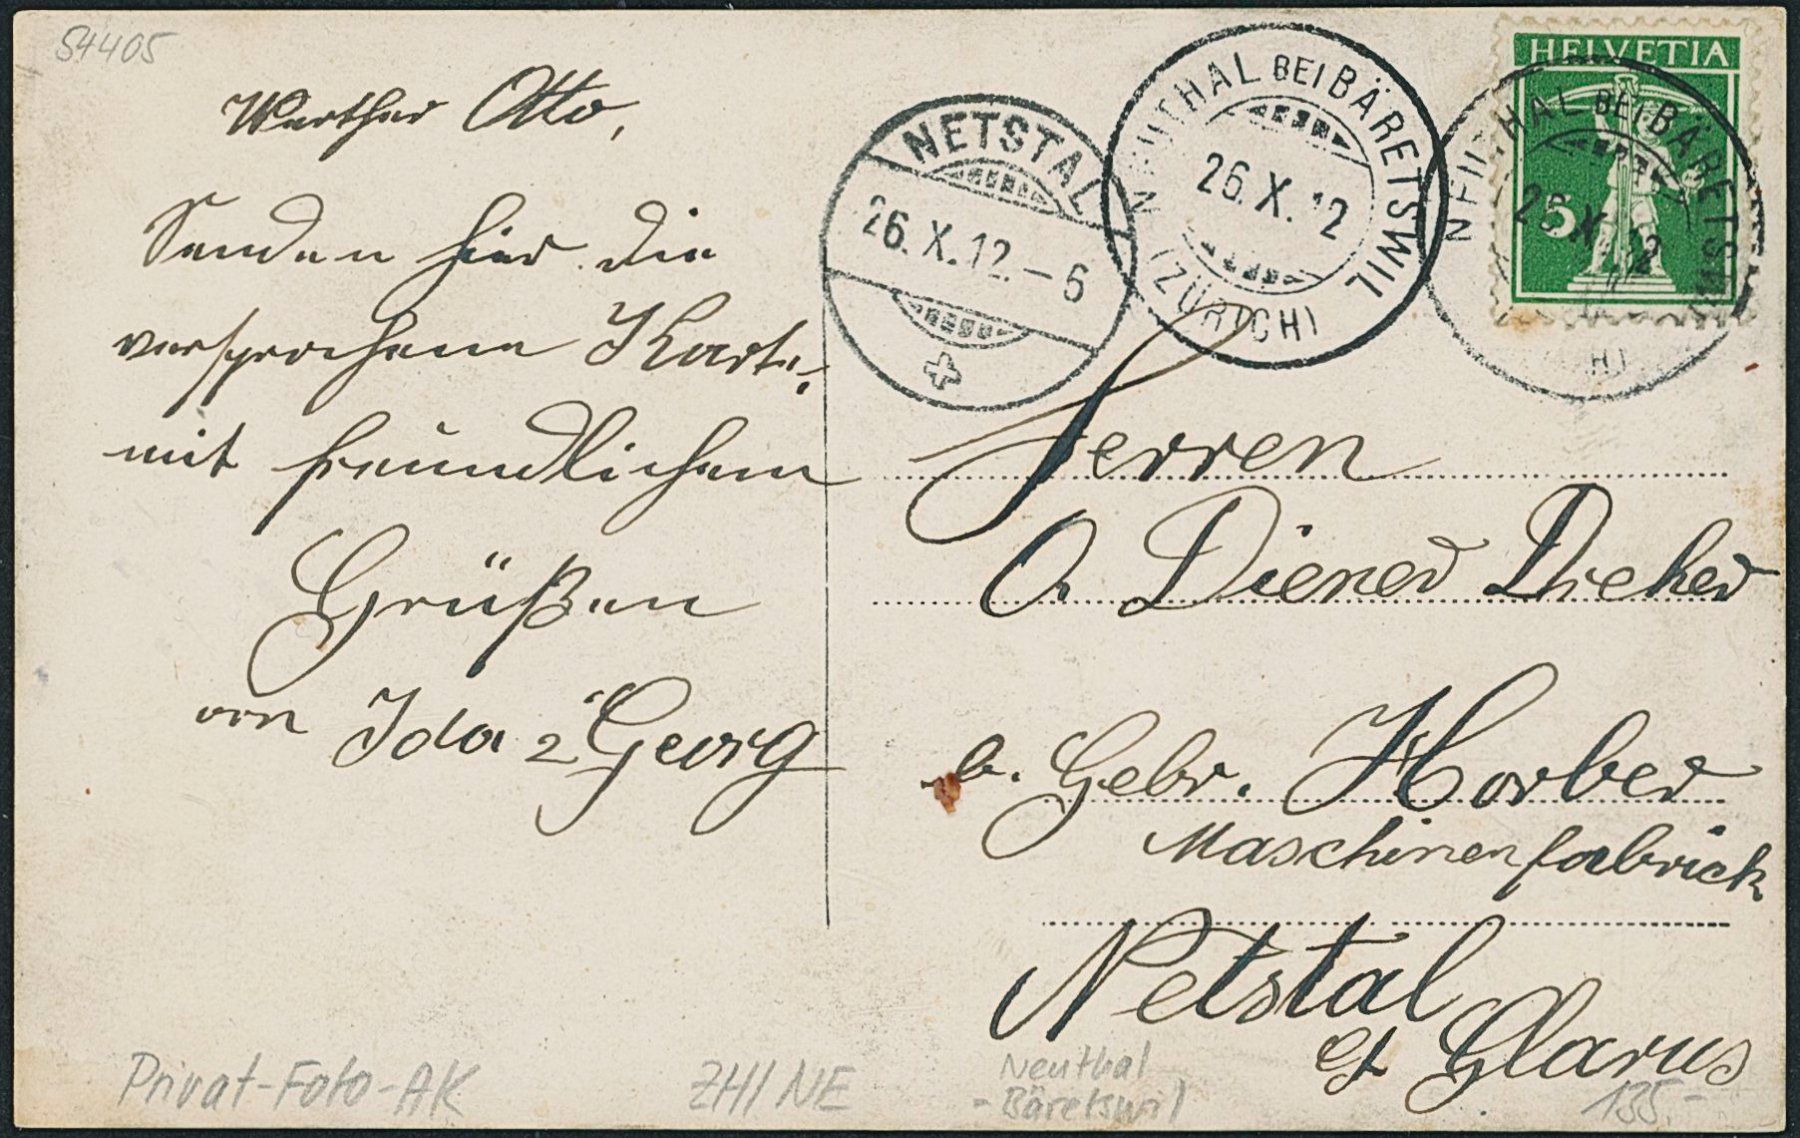 S4405
Werther Otto,
Senden hier die
versprochene Karte,
mit freundlichem
Grüßen
von Ida & Georg
NETSTAL
26.X.12.-6
NEUTHAL BEI BÄRETSWIL
26.X.12
(ZÜRICH)
HELVETIA
5
NEUTHAL BEI BÄRETSWIL
26.X.12
H)
Herren
O. Diener Dreher
b. Gebr. Horber
Maschinenfabrick
Netstal
Glarus
Privat-Foto-AK
ZH/NE
Neuthal
-Bäretswil
135.-